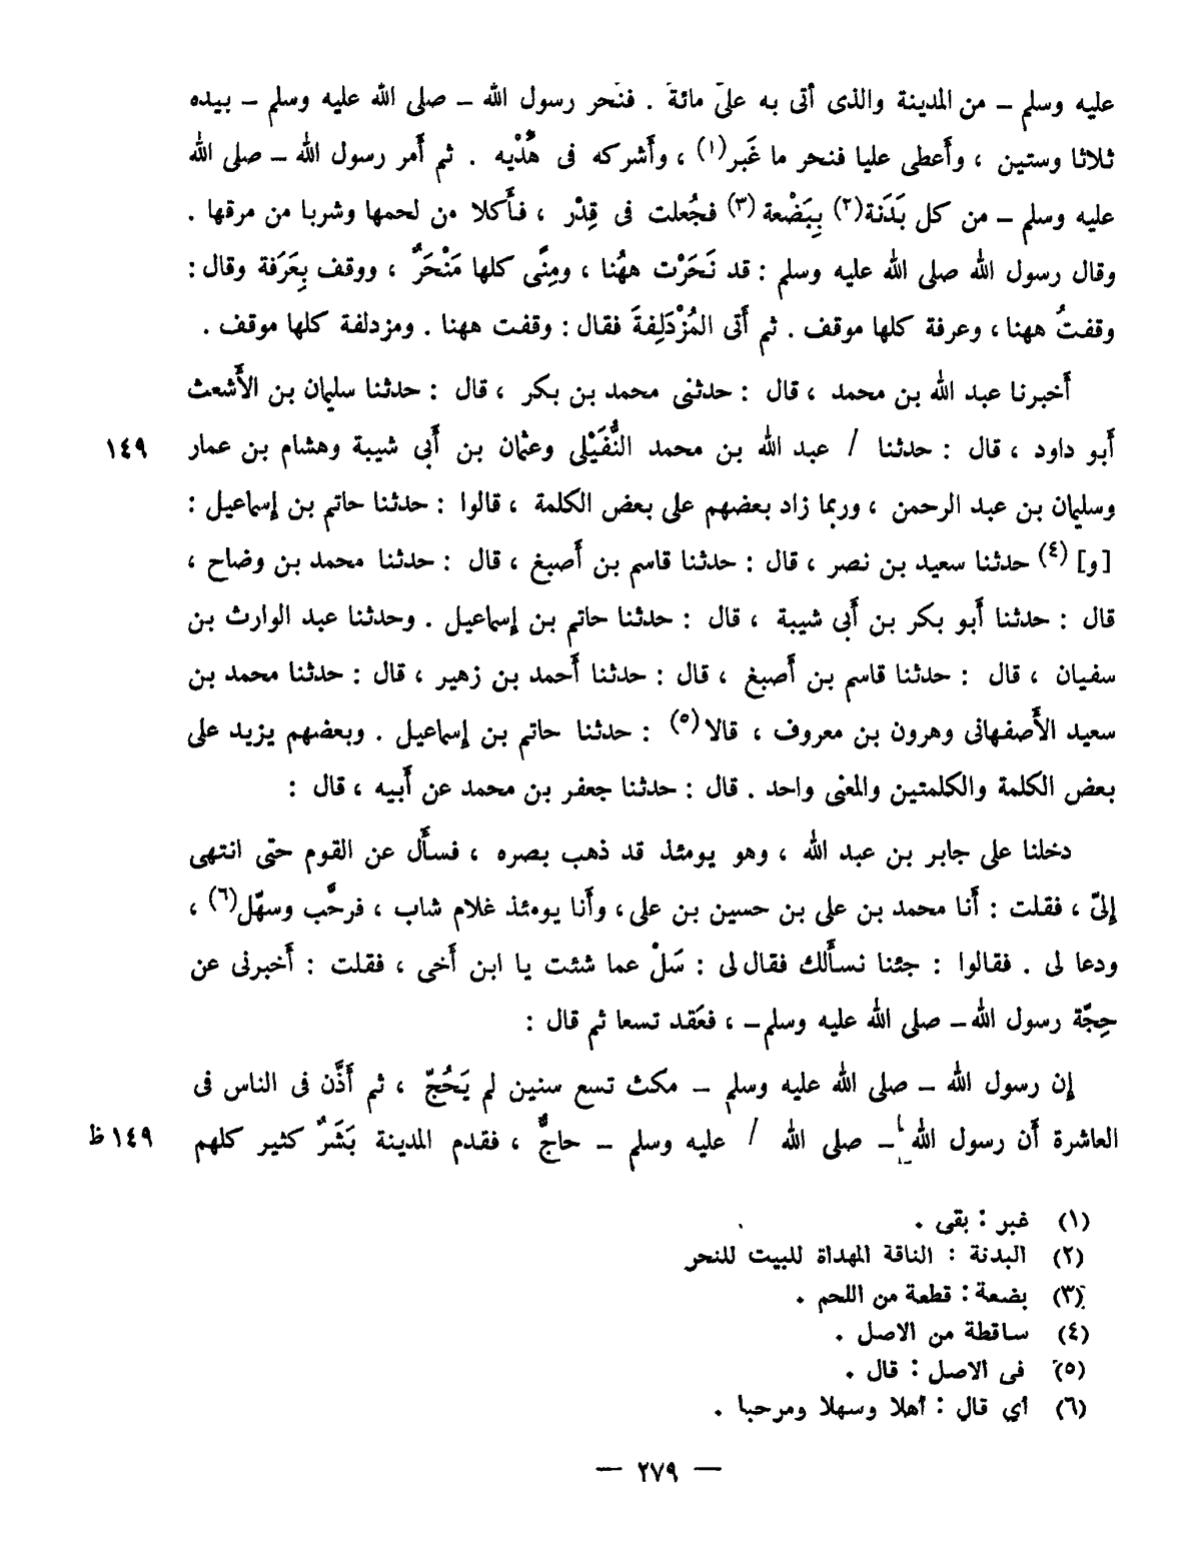 عليه وسلم – من المدينة والذى أتى به علىّ مائة . فنحر رسول الله – صلى الله عليه وسلم – بيده
ثلاثا وستين ، وأَعطى عليا فنحر ما غَبر(١) ، وأَشركه فى هُدْيه . ثم أَمر رسول الله – صلى الله
عليه وسلم – من كل بَدَنة(٢) بِبَضْعة (٣) فجُعلت فى قِدْر ، فأَكلا من لحمها وشربا من مرقها .
وقال رسول الله صلى الله عليه وسلم : قد نَحَرْت ههُنا ، ومِنًى كلها مَنْحَرٌ ، ووقف بِعَرَفة وقال :
وقفتُ ههنا ، وعرفة كلها موقف . ثم أَتى المُزْدَلِفةَ فقال : وقفت ههنا . ومزدلفة كلها موقف .
أَخبرنا عبد الله بن محمد ، قال : حدثنى محمد بن بكر ، قال : حدثنا سليمان بن الأَشعث
أَبو داود ، قال : حدثنا / عبد الله بن محمد النُّفَيْلى وعثمان بن أَبى شيبة وهشام بن عمار ١٤٩
وسليمان بن عبد الرحمن ، وربما زاد بعضهم على بعض الكلمة ، قالوا : حدثنا حاتم بن إسماعيل :
[و] (٤) حدثنا سعيد بن نصر ، قال : حدثنا قاسم بن أَصبغ ، قال : حدثنا محمد بن وضاح ،
قال : حدثنا أَبو بكر بن أَبى شيبة ، قال : حدثنا حاتم بن إسماعيل . وحدثنا عبد الوارث بن
سفيان ، قال : حدثنا قاسم بن أَصبغ ، قال : حدثنا أَحمد بن زهير ، قال : حدثنا محمد بن
سعيد الأَصفهانى وهرون بن معروف ، قالا(٥) : حدثنا حاتم بن إسماعيل . وبعضهم يزيد على
بعض الكلمة والكلمتين والمعنى واحد . قال : حدثنا جعفر بن محمد عن أَبيه ، قال :
دخلنا على جابر بن عبد الله ، وهو يومئذ قد ذهب بصره ، فسأَل عن القوم حتى انتهى
إلىّ ، فقلت : أَنا محمد بن على بن حسين بن على ، وأَنا يومئذ غلام شاب ، فرحَّب وسهّل(٦) ،
ودعا لى . فقالوا : جئنا نسأَلك فقال لى : سَلْ عما شئت يا ابن أَخى ، فقلت : أَخبرنى عن
حِجّة رسول الله – صلى الله عليه وسلم – ، فعَقد تسعا ثم قال :
إن رسول الله – صلى الله عليه وسلم – مكث تسع سنين لم يَحُجّ ، ثم أَذَّن فى الناس فى
العاشرة أَن رسول الله – صلى الله / عليه وسلم – حاجٌّ ، فقدم المدينة بَشَرٌ كثير كلهم ١٤٩ ظ
(١) غبر : بقى .
(٢) البدنة : الناقة المهداة للبيت للنحر
(٣) بضعة : قطعة من اللحم .
(٤) ساقطة من الاصل .
(٥) فى الاصل : قال .
(٦) أي قال : أهلا وسهلا ومرحبا .
— ٢٧٩ —